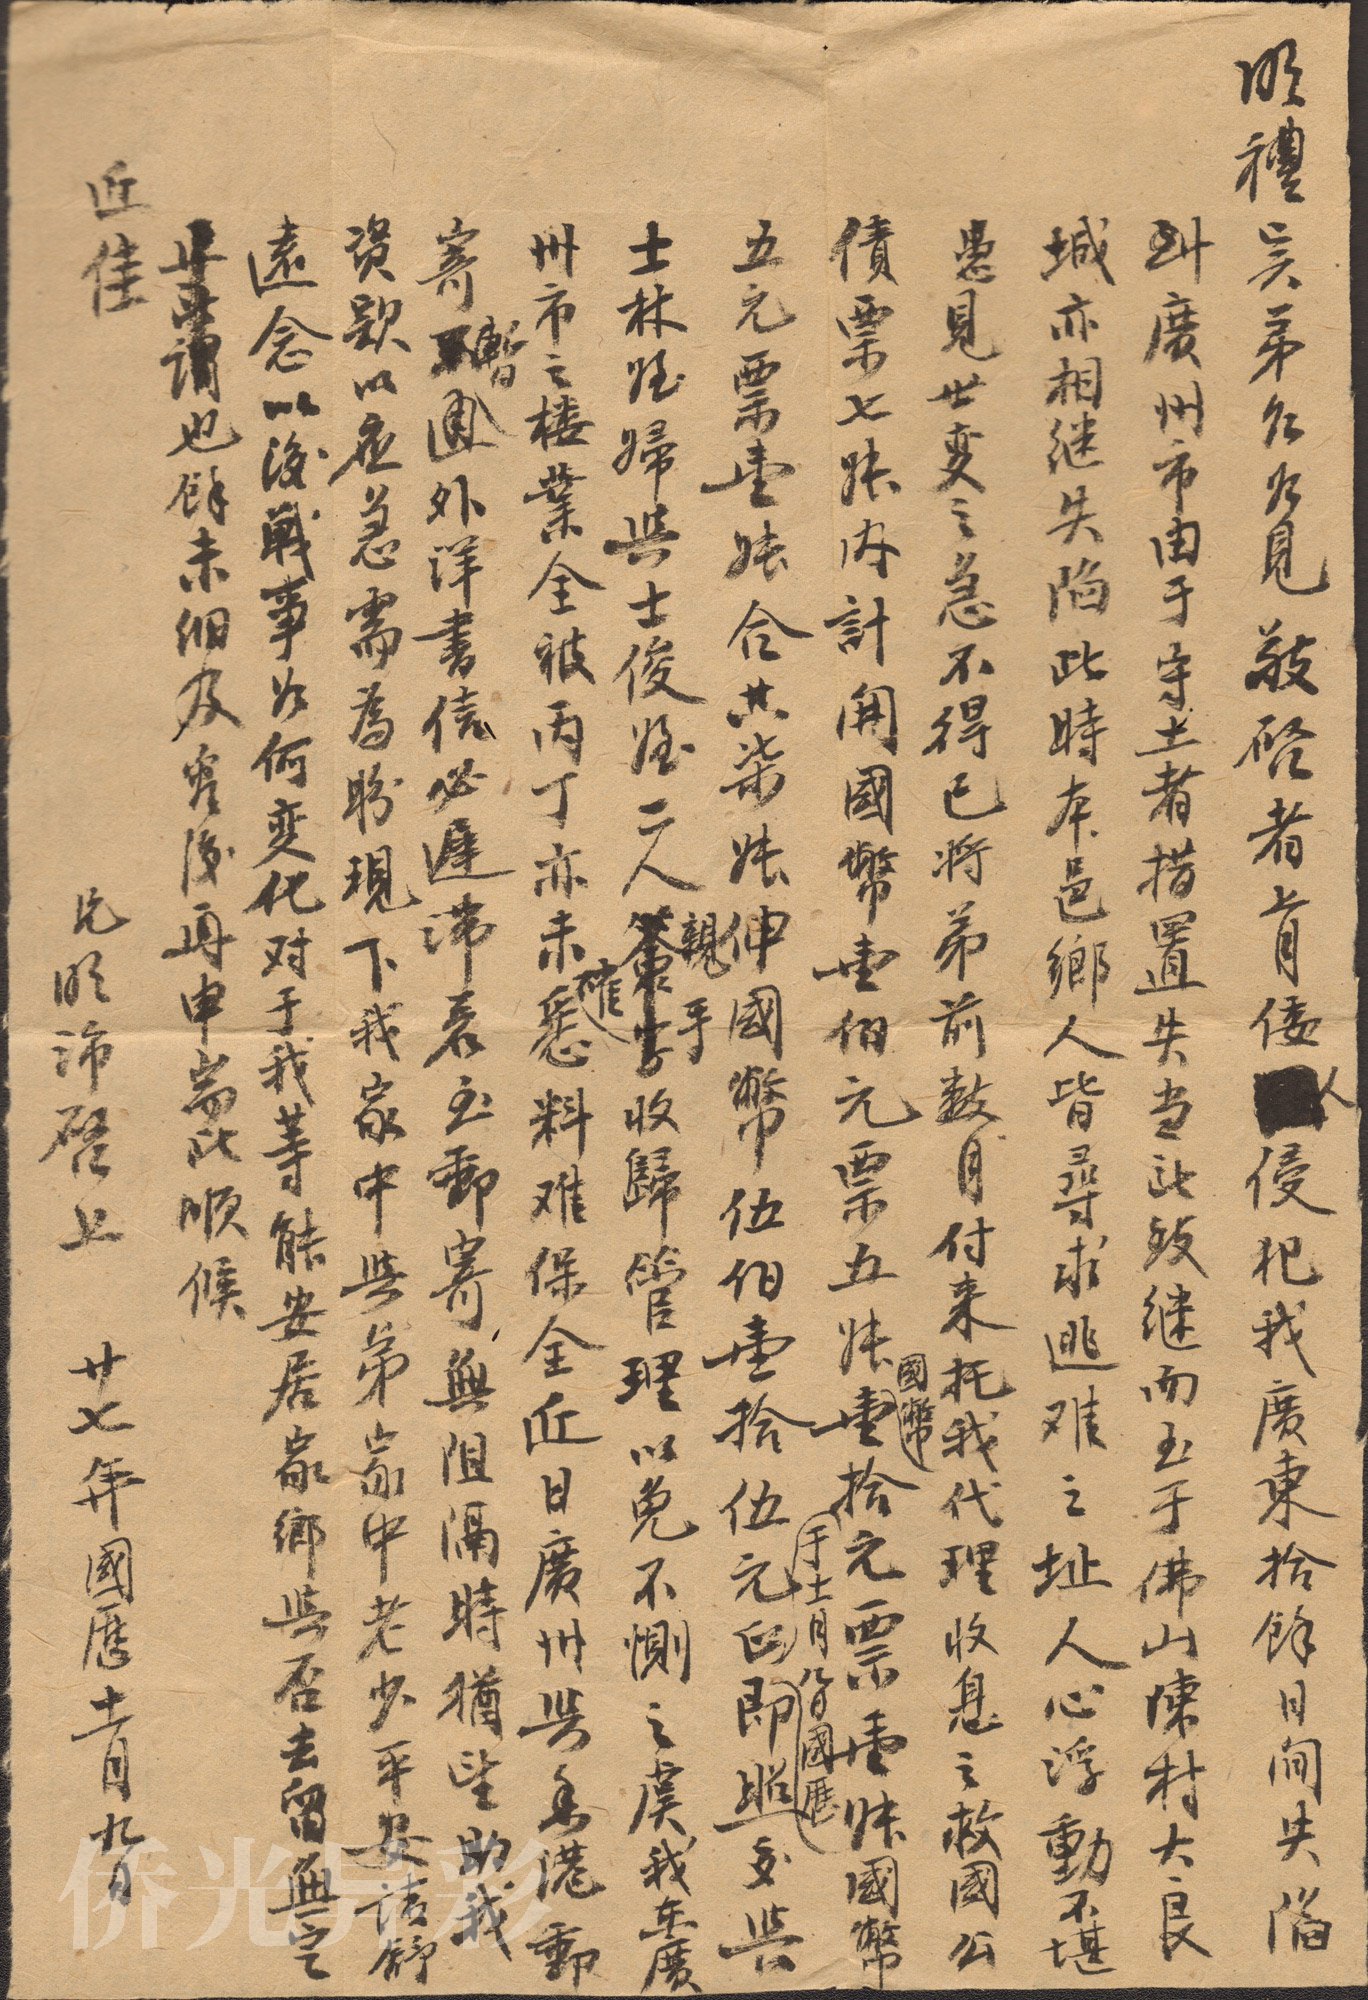 明禮吴弟如見敬啓者肯倭人侵犯我廣東拾餘日间失陷
到廣州市由于守土者措置失当此致继而至于佛山陳村大良
城亦相继失陷此時本邑鄉人皆尋求逃难之址人心浮動不堪
愚見世变之急不得已将弟前数月付来托我代理收息之救國公
債票七张内計開國幣壹佰元票五张國幣壹拾元票壹张國幣
五元票壹张合共柒张伸國幣伍佰壹拾伍元已即于十一月八日國歷照交與
士林姪婦與士俊姪二人親手收歸管理以免不惻之虞我在廣
州市之楼業全被丙丁亦未確悉料难保全近日廣州與香港郵
寄暫通外洋書信必遲滞若至郵寄無阻隔時猶望助我
資款以应急需為盼現下我家中與弟家中老少平安請舒
遠念以後戰事如何变化对于我等能安居家鄉與否去留無定
也餘未细及容後再申耑此順候
近佳
兄明沛啓上 廿七年國歷十一月九日
侨光异彩